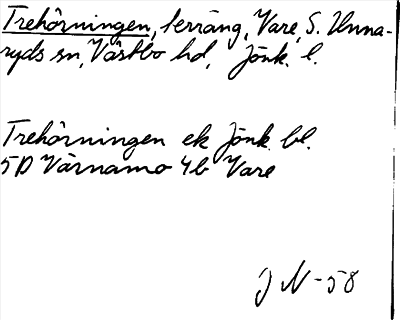 Trehörningen, terräng, Vare, S. Unna-
ryds sn, Västbo hd, Jönk. l.
Trehörningen ek Jönk. bl.
5D Värnamo 4b Vare
J N-58